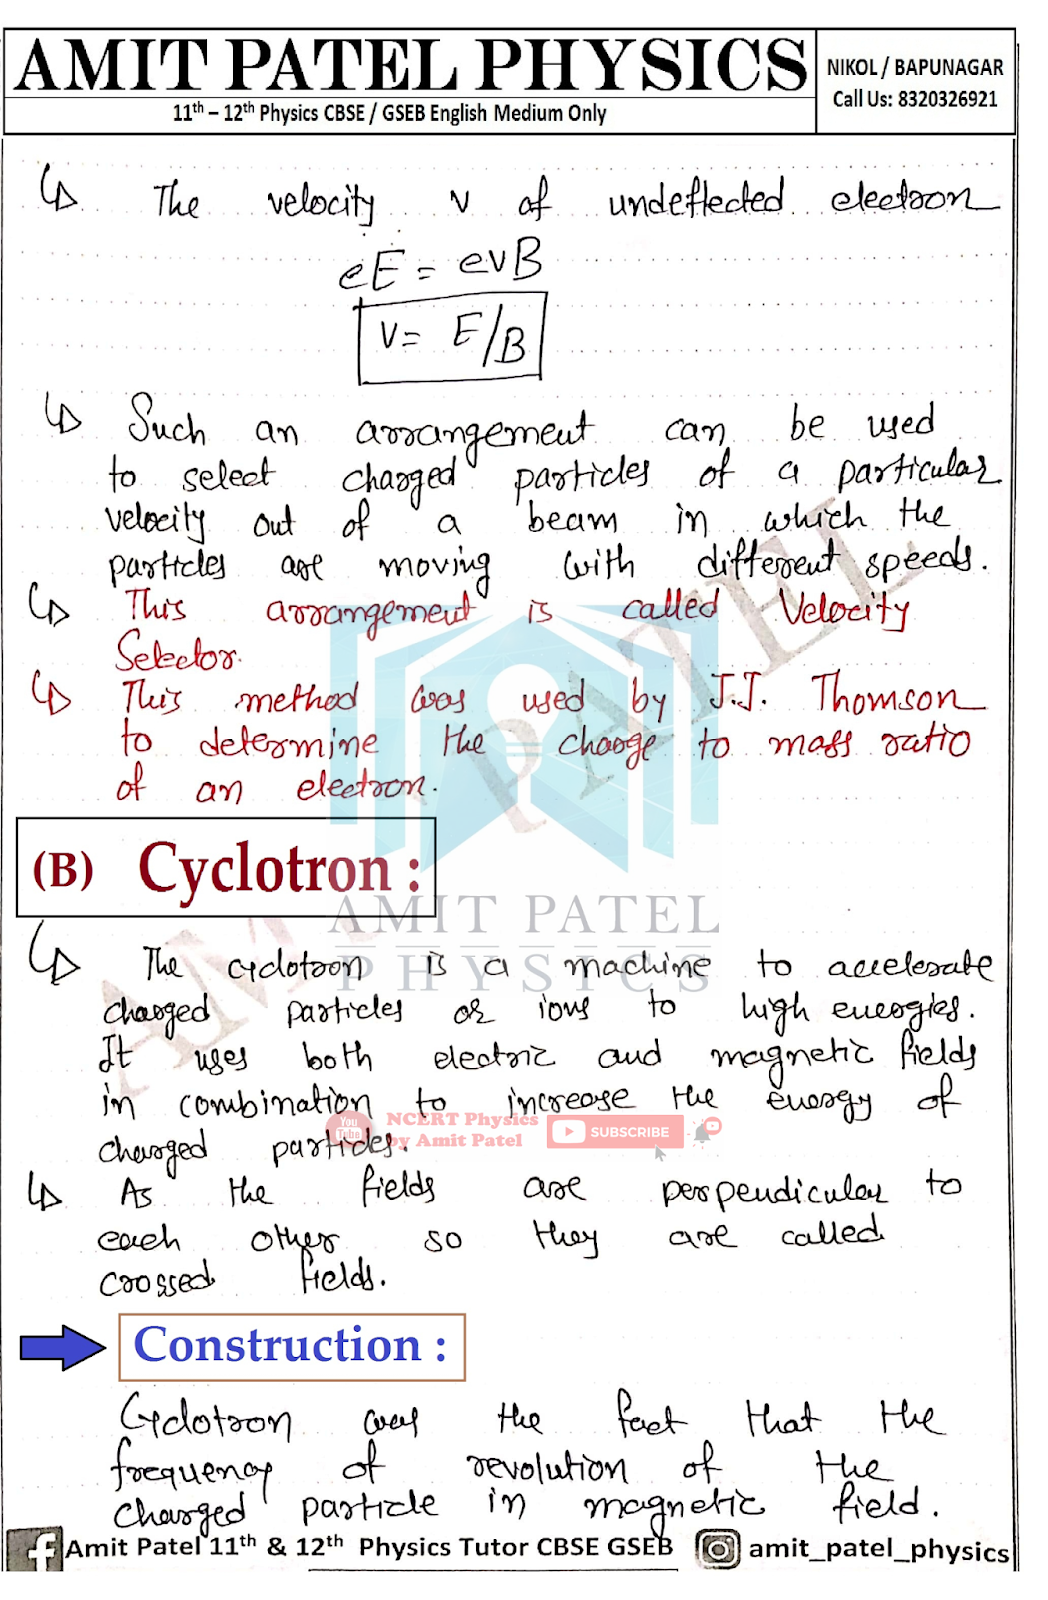 AMIT PATEL PHYSICS
11th – 12th Physics CBSE / GSEB English Medium Only
NIKOL / BAPUNAGAR
Call Us: 8320326921
The velocity v of undeflected electron
eE = evB
v = E/B
Such an arrangement can be used
to select charged particles of a particular
velocity out of a beam in which the
particles are moving with different speeds.
This arrangement is called Velocity
Selector.
This method was used by J.J. Thomson
to determine the charge to mass ratio
of an electron.
(B) Cyclotron :
AMIT PATEL
PHYSICS
The cyclotron is a machine to accelerate
charged particles or ions to high energies.
It uses both electric and magnetic fields
in combination to increase the energy of
NCERT Physics
by Amit Patel
You Tube
SUBSCRIBE
charged particles.
As the fields are perpendicular to
each other so they are called
crossed fields.
Construction :
Cyclotron uses the fact that the
frequency of revolution of the
charged particle in magnetic field.
Amit Patel 11th & 12th Physics Tutor CBSE GSEB
amit_patel_physics